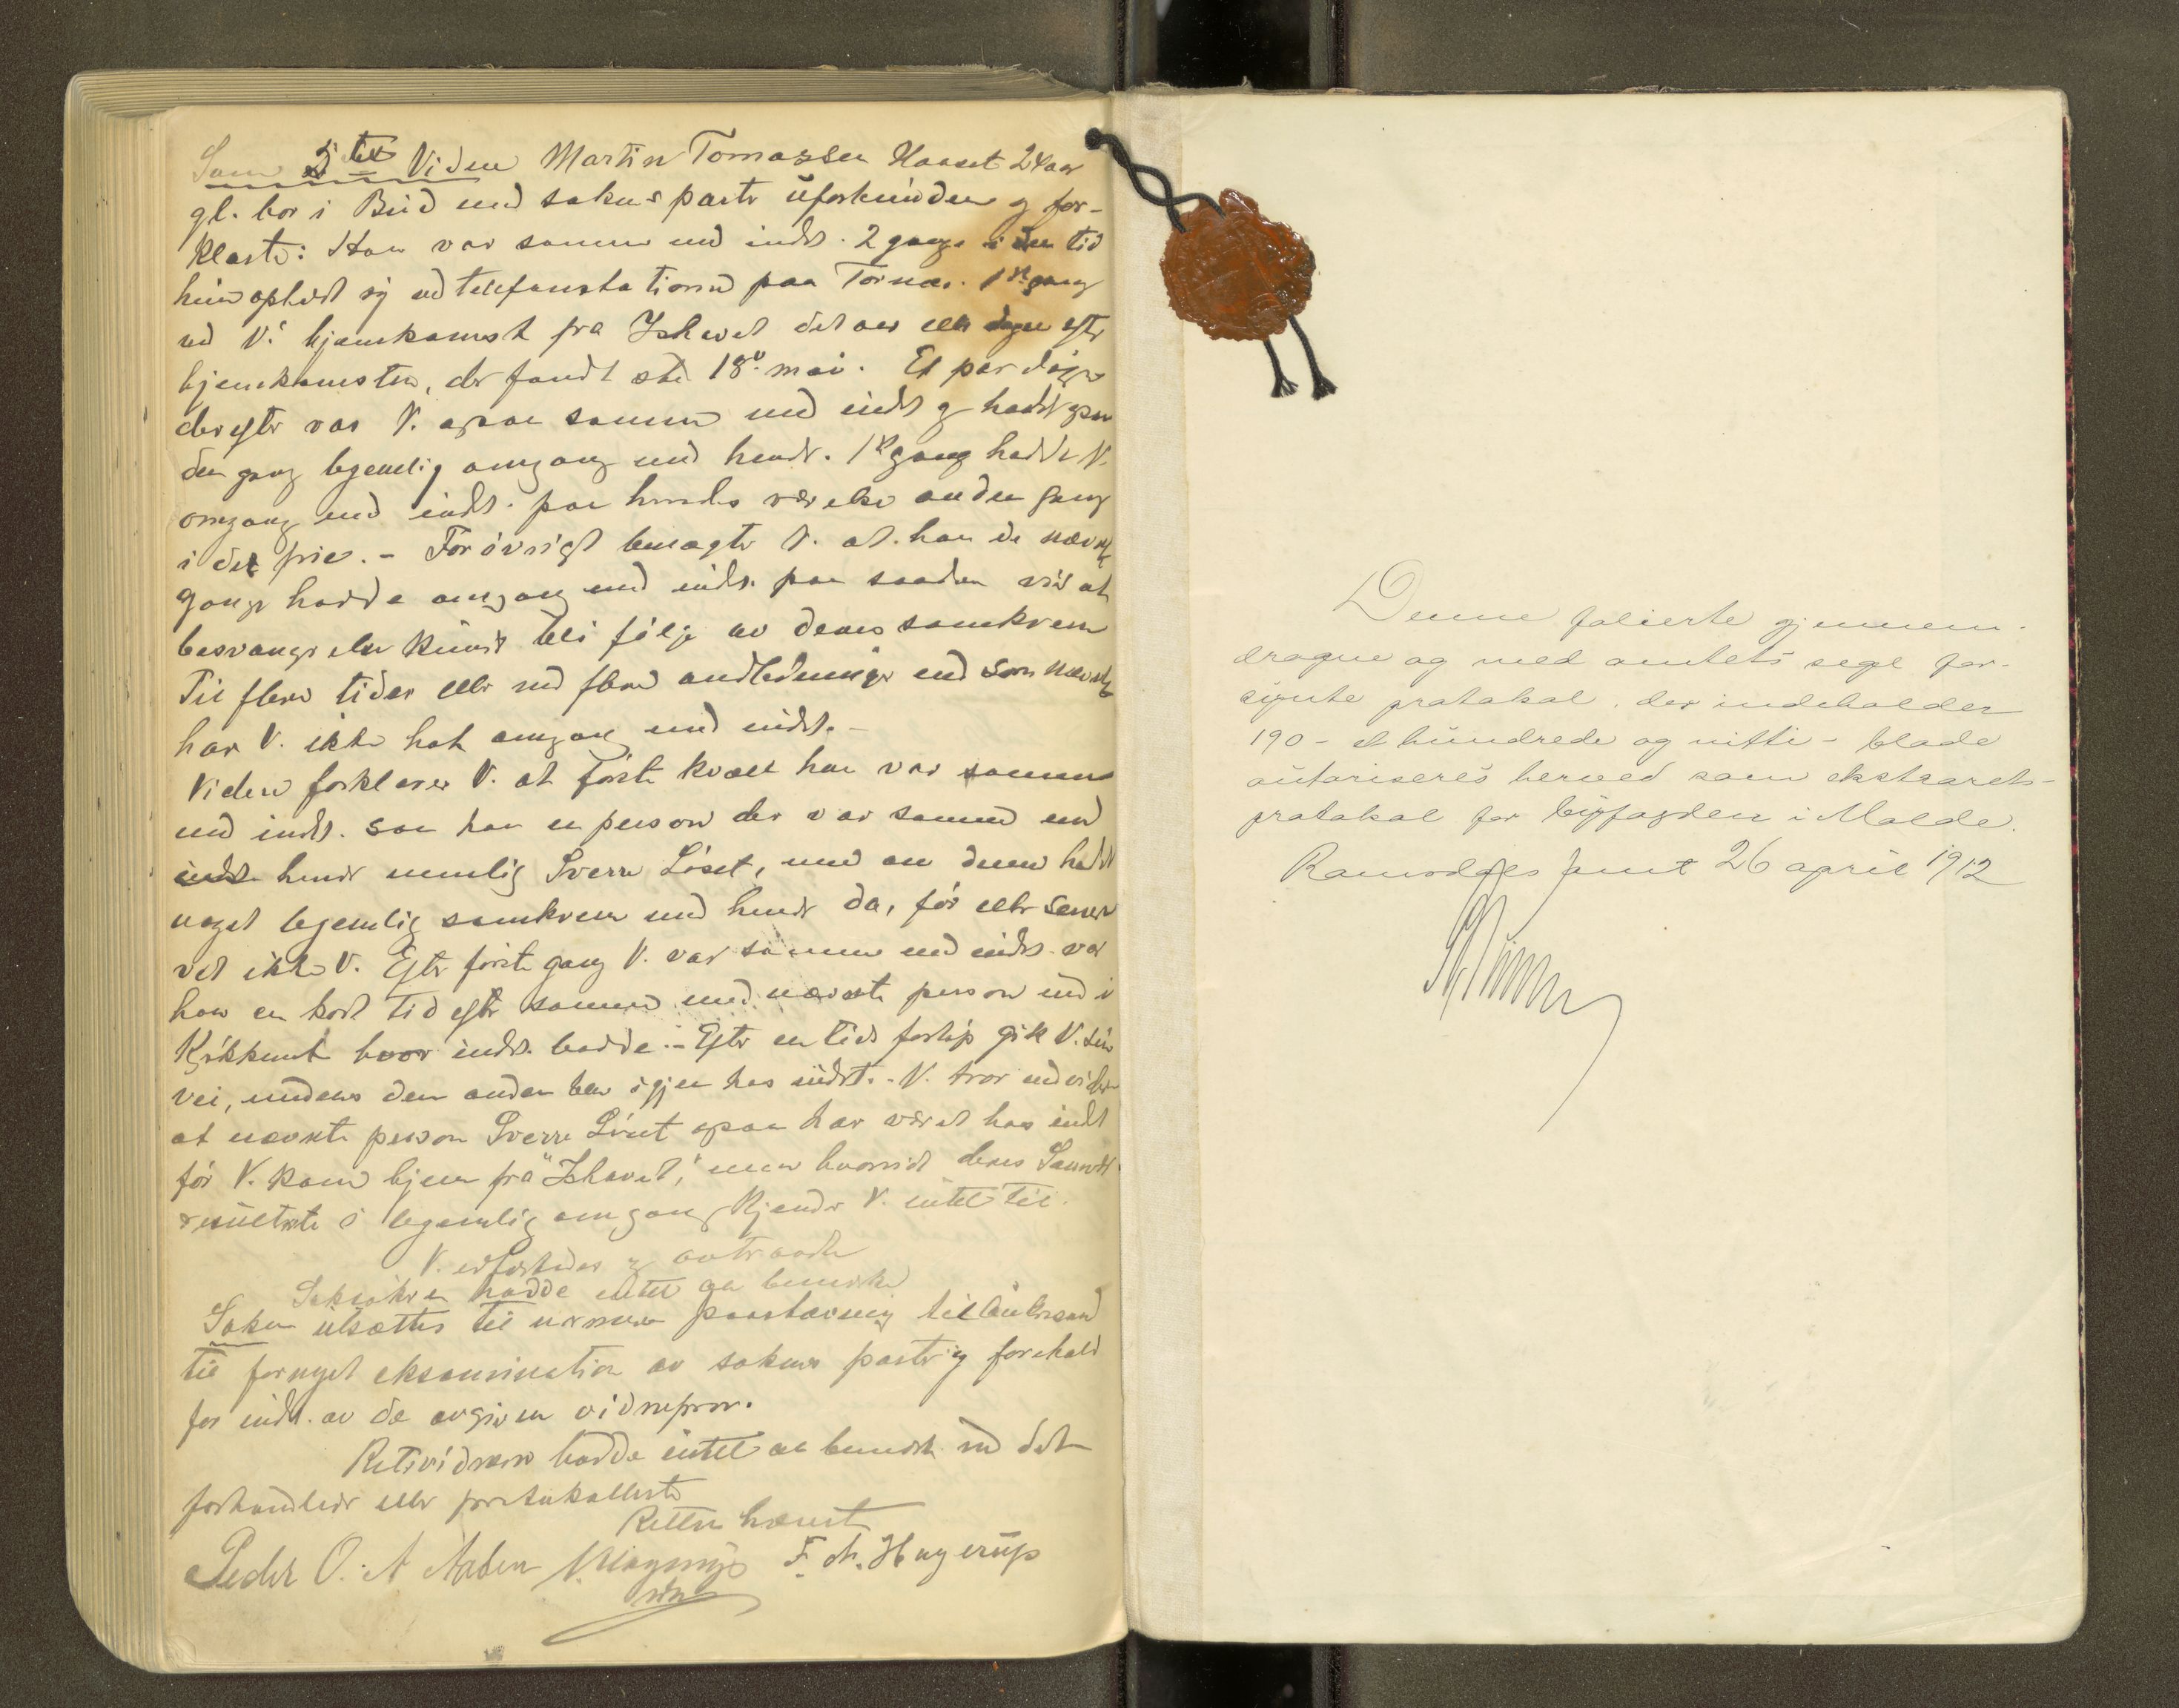 Som 5te Vidne Martin Tomassen Haaset 24 aar
gl. bor i Bud med sakens parter uforbunden og for-
klarte: Han var sammen med indst. 2 gange i den tid
hun opholdt sig ved telefonstationen paa Tornes. 1ste gang
ved V.' hjemkomst fra Ishavet det var eller dagen efter
hjemkomsten, der fandt sted 18de mai. Et par dage
derefter var V. ogsaa sammen med indst og hadde ogsaa
den gang legemlig omgang med hende. 1ste gang hadde V.
omgang med indst. paa hendes værelse anden gang
i det frie. - Forøvrigt benægter V. at han de nævnte
gange hadde omgang med indst. paa saadan vis at
besvangrelse kunde bli følge av deres samkvem
Til flere tider eller ved flere andledninger end som nævnt
har V. ikke hat omgang med indst. -
Videre forklarer V. at første kveld han var sammen
med indst. saa han en person der var sammen med
indst. hende nemlig Sverre Löset, men om denne hadde
noget legemlig samkvem med hende da, før eller senere
vet ikke V. Efter første gang V. var sammen med indst. var
han en kort tid efter sammen med nævnte person ind i
Kjøkkenet hvor indst. bodde. - Efter en tids forløp gik V. sin
vei, medens den anden blev igjen hos indst. - V. tror endvidere
at nævnte person Sverre Löset ogsaa har været hos indst
før V. kom hjem fra "Ishavet," men hvorvidt deres
resulterte i legemlig omgang kjender V. intet til.
V. og avtraadte
Saksøkeren hadde intet at bemerke
Saken utsættes til nærmere paastævning
til fornyet eksamination av sakens parter og forehold
for indst. av de avgivne vidneprov.
Retsvidnerne hadde intet at bemerke ved det
forhandlede eller protokollerte
Retten hævet
Peder O. A F. Chr. Hagerup
Denne folierte gjennem-
dragne og med amtets segl for-
synte protokol, der indeholder
190 - et hundrede og nitti - blade
autoriseres herved som ekstrarets-
protokol for byfogden i Molde.
Romsdals Amt 26 april 1912